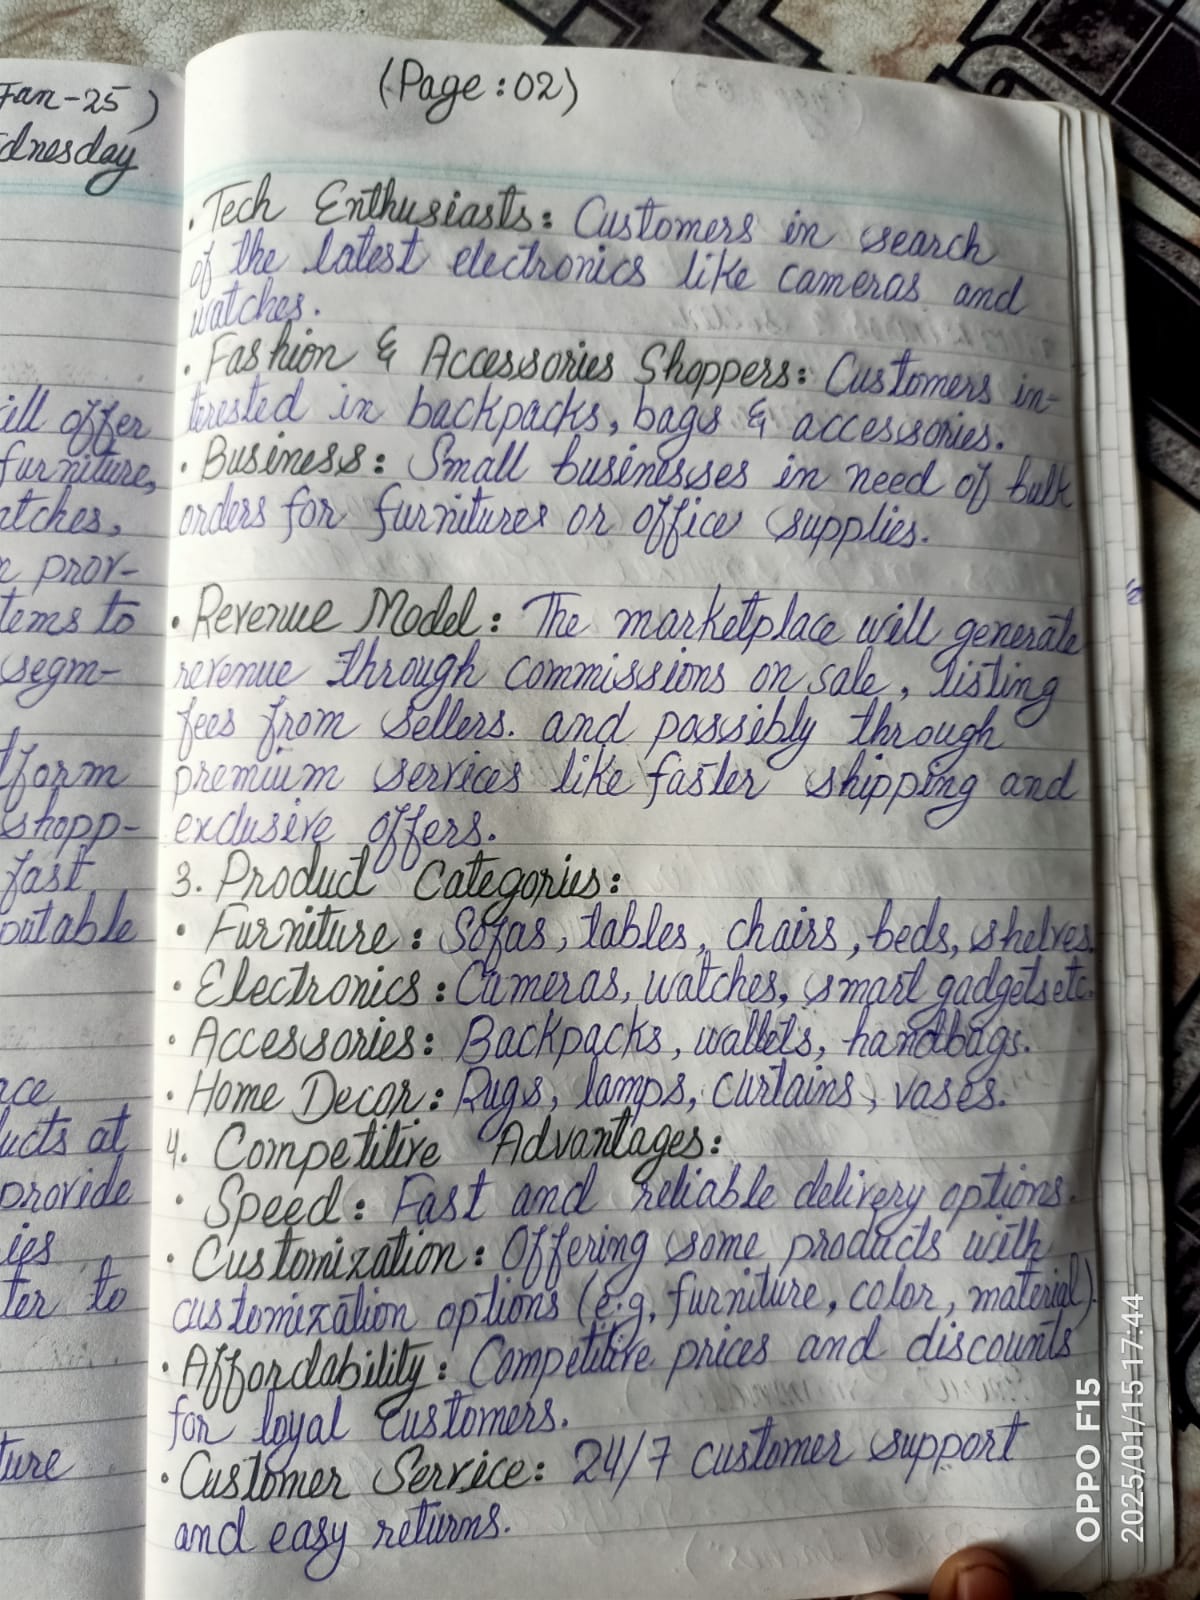 Jan-25)
dnesday
ill offer
furniture,
atches,
n prov-
tems to
segm-
tform
shopp-
fast
putable
ace
ucts at
provide
ies
ter to
ture
(Page:02)
• Tech Enthusiasts: Customers in search
of the latest electronics like cameras and
watches.
• Fashion & Accessories Shoppers: Customers in-
terested in backpacks, bags & accessories.
• Business: Small businesses in need of bulk
orders for furnitures or office supplies.
• Revenue Model: The marketplace will generate
revenue through commissions on sale, listing
fees from sellers. and possibly through
premium services like faster shipping and
exclusive offers.
3. Product Categories:
• Furniture: Sofas, tables, chairs, beds, shelves.
• Electronics: Cameras, watches, smart gadgets etc.
• Accessories: Backpacks, wallets, handbags.
• Home Decor: Rugs, lamps, curtains, vases.
4. Competitive Advantages:
• Speed: Fast and reliable delivery options.
• Customization: Offering some products with
customization options (e.g, furniture, color, material).
• Affordability: Competitive prices and discounts
for loyal customers.
• Customer Service: 24/7 customer support
and easy returns.
OPPO F15
2025/01/15 17:44